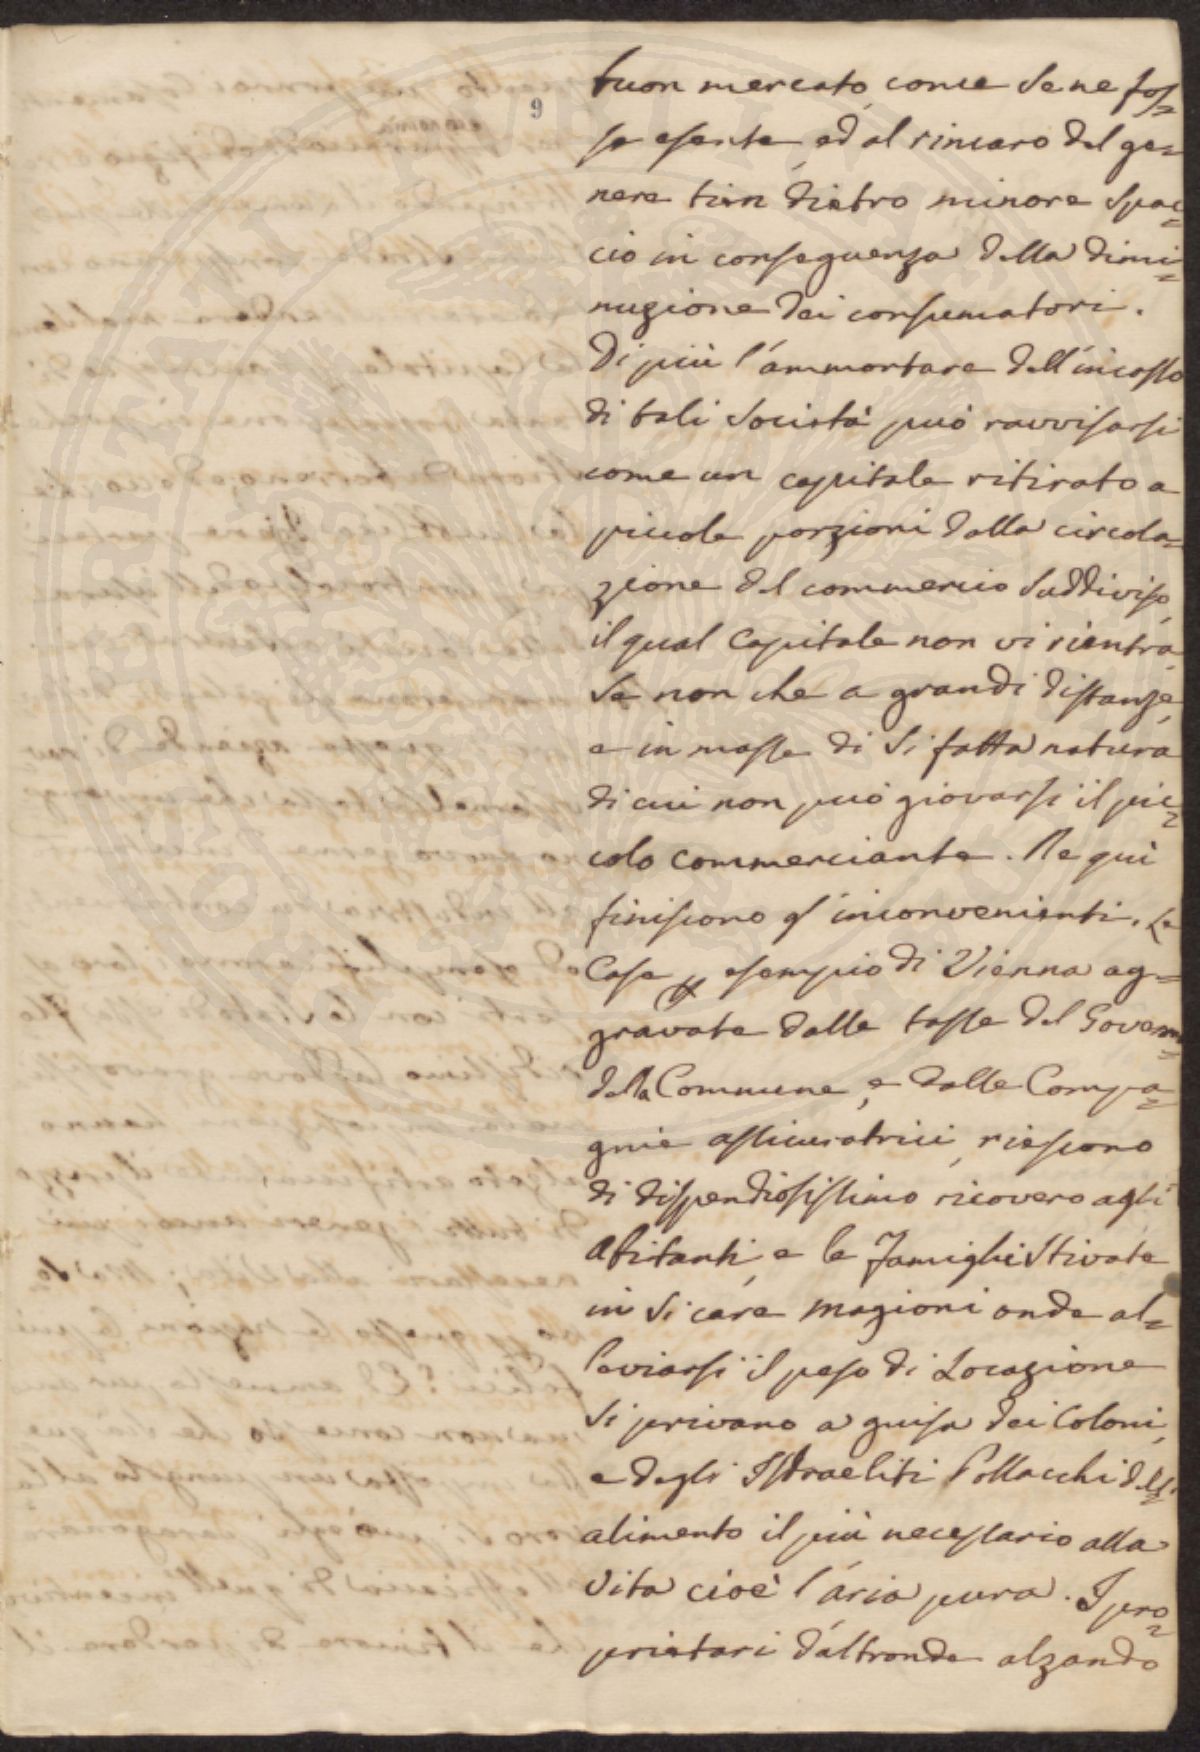 9
buon mercato, come se ne fos=
se esente, ed al rincaro del ge=
nere tien dietro minore spac=
cio in conseguenza della dimi=
nuzione dei consumatori.
Di più l'ammontare dell'incasso
di tali Società può ravvisarsi
come un capitale ritirato a
piccole porzioni dalla circola=
zione del commercio suddiviso,
il qual Capitale non vi rientra,
se non che a grandi distanze,
e in masse di sì fatta natura
di cui non può giovarsi il pic=
colo commerciante. Ne qui
finiscono gl'inconvenienti. Le
Case p esempio di Vienna ag=
gravate dalle tasse del Governo
della Commune, e dalle Compa=
gnie assicuratrici, riescono
di dispendiosissimo ricovero agli
abitanti, e le famiglie stivate
in sì care magioni onde al=
leviarsi il peso di Locazione
si privano a guisa dei Coloni,
e degli Isdraeliti Pollacchi dell'
alimento il più necessario alla
vita cioè l'aria pura. I pro=
prietari d'altronde alzando